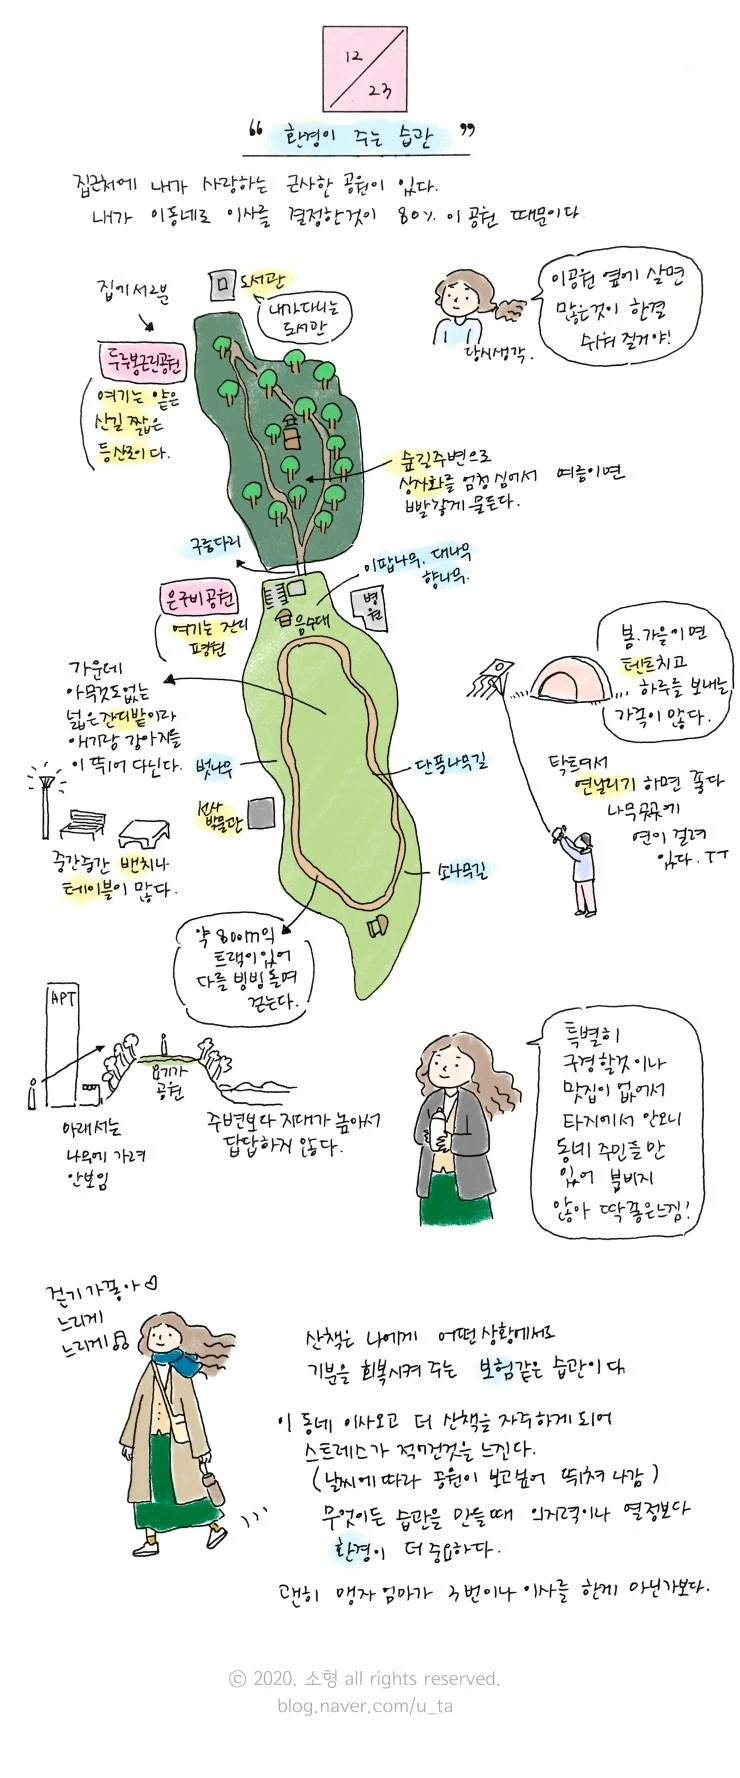 12
23
“ 환경이 주는 습관 ”
집근처에 내가 사랑하는 근사한 공원이 있다.
내가 이동네로 이사를 결정한것이 80% 이 공원 때문이다
집에서 2분
도서관
내가 다니는
도서관
두루봉근린공원
여기는 얕은
산길 짧은
등산로이다.
이공원 옆에 살면
많은것이 한결
쉬워 질거야!
당시생각.
숲길주변으로
상사화를 엄청 심어서 여름이면
빨갛게 물든다.
구름다리
이팝나무, 대나무
향나무.
은구비공원
여기는 잔디
평원
음수대
병원
가운데
아무것도없는
넓은잔디밭이라
애기랑 강아지들
이 뛰어 다닌다.
벚나무
단풍나무길
봄.가을이면
텐트치고
하루를 보내는
가족이 많다.
탁트여서
연날리기 하면 좋다
나무곳곳에
연이 걸려
있다. ㅜㅜ
선사
박물관
중간중간 벤치나
테이블이 많다.
소나무길
약 800m의
트랙이 있어
다들 빙빙돌며
걷는다.
APT
요기가
공원
아래서는
나무에 가려
안보임
주변보다 지대가 높아서
답답하지 않다.
특별히
구경할것이나
맛집이 없어서
타지에서 안오니
동네 주민들만
있어 붐비지
않아 딱좋은느낌!
걷기가좋아♡
느리게
느리게♫
산책은 나에게 어떤상황에서도
기분을 회복시켜 주는 보험같은 습관이다
이 동네 이사오고 더 산책을 자주하게 되어
스트레스가 적어진것을 느낀다.
(날씨에 따라 공원이 보고싶어 뛰쳐 나감)
무엇이든 습관을 만들때 의지력이나 열정보다
환경이 더 중요하다.
괜히 맹자 엄마가 3번이나 이사를 한게 아닌가보다.
© 2020. 소형 all rights reserved.
blog.naver.com/u_ta